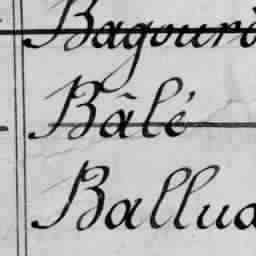 Bagouri
Bâlé
Ballua